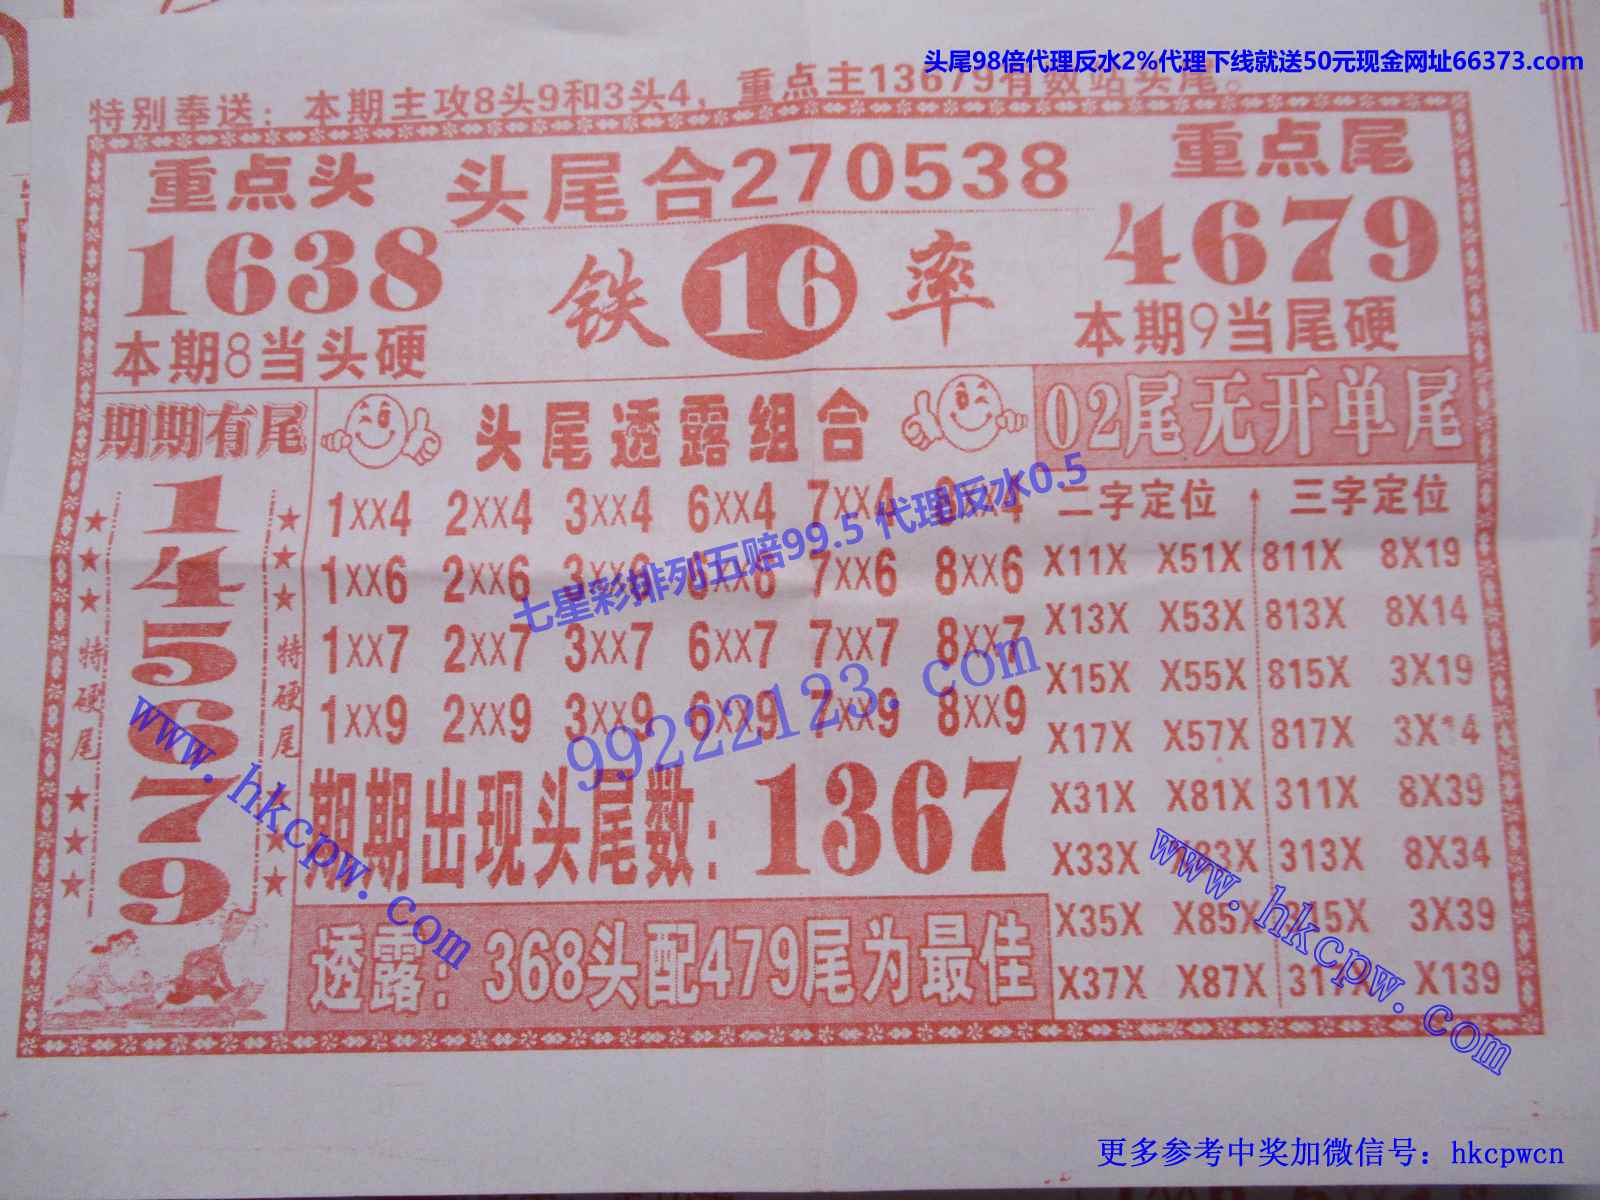 头尾98倍代理反水2%代理下线就送50元现金网址66373.com
特别奉送：本期主攻8头9和3头4，重点主13679有数站头尾。
重点头 头尾合270538 重点尾
1638 铁16率 4679
本期8当头硬 本期9当尾硬
期期有尾 头尾透露组合 02尾无开单尾
1
4
5
6
7
9
特硬尾 特硬尾
1XX4 2XX4 3XX4 6XX4 7XX4 8XX4
1XX6 2XX6 3XX6 6XX6 7XX6 8XX6
1XX7 2XX7 3XX7 6XX7 7XX7 8XX7
1XX9 2XX9 3XX9 6XX9 7XX9 8XX9
期期出现头尾数：1367
透露：368头配479尾为最佳
二字定位 三字定位
X11X X51X 811X 8X19
X13X X53X 813X 8X14
X15X X55X 815X 3X19
X17X X57X 817X 3X14
X31X X81X 311X 8X39
X33X X83X 313X 8X34
X35X X85X 315X 3X39
X37X X87X 317X X139
七星彩排列五赔99.5 代理反水0.5
99222123.com
www.hkcpw.com
www.hkcpw.com
更多参考中奖加微信号：hkcpwcn